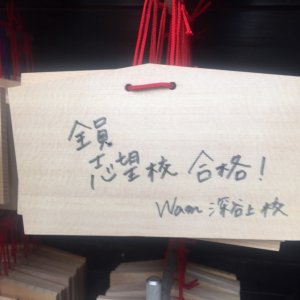 全員
志望校 合格!
Wam 深谷上校